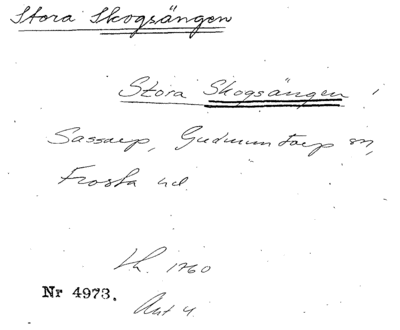 Stora Skogsängen
Stora Skogsängen i
Sassarp, Gudmuntorp sn,
Frosta hd.
Lh. 1760
Nr 4973.
Akt 4